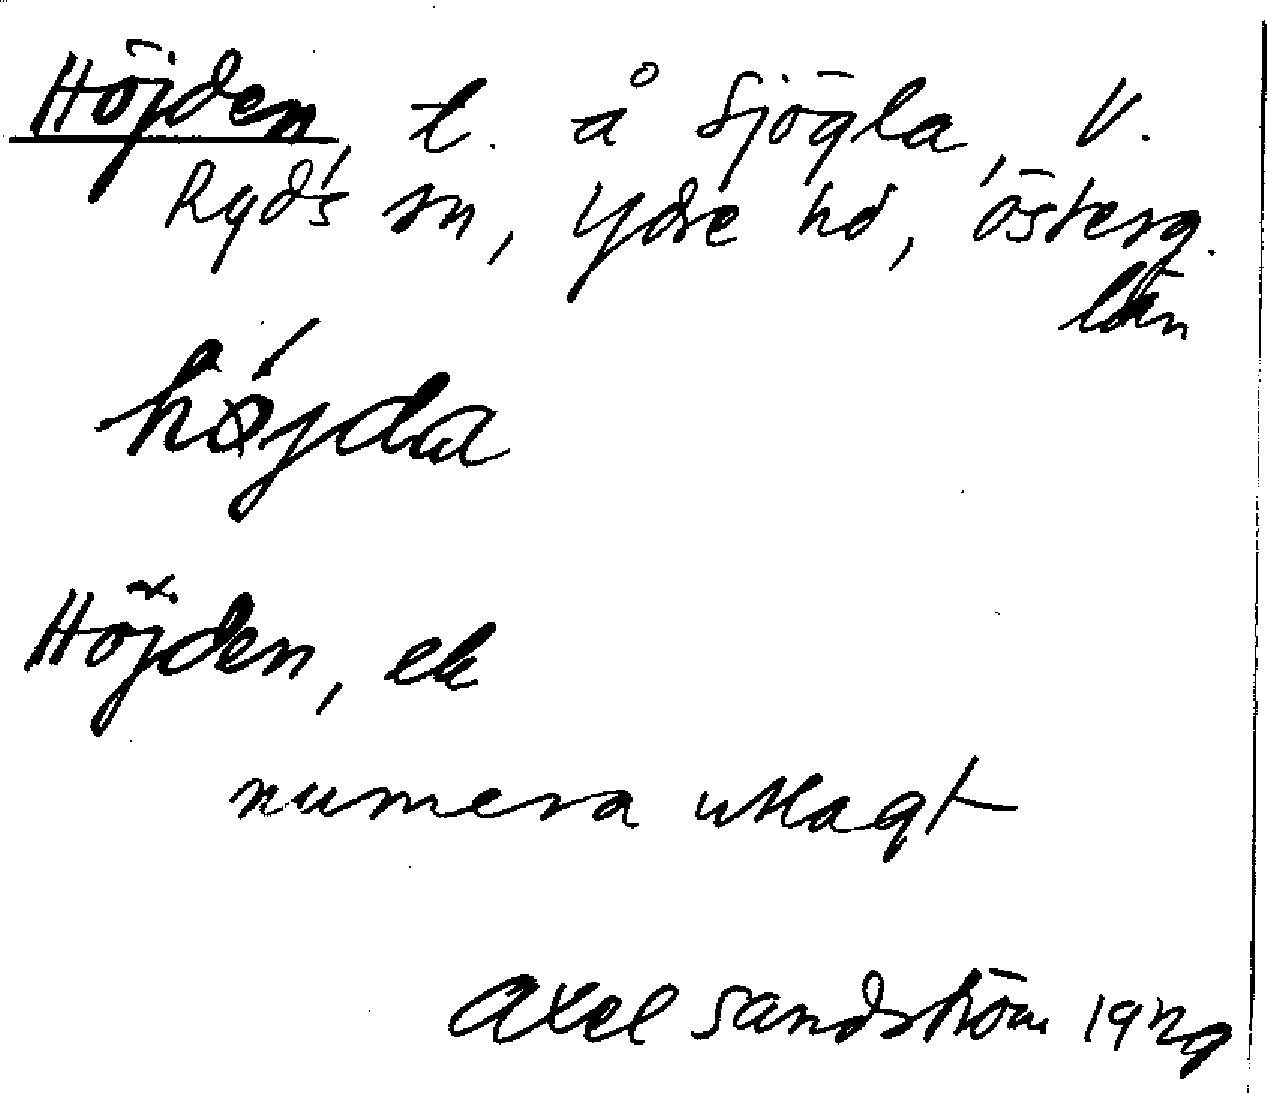 Höjden, t. å Sjögla, V.
Ryd's sn, Ydre hd, Österg.
län
hø´jda
Höjden, ek
numera utlagt
Axel Sandström 1929